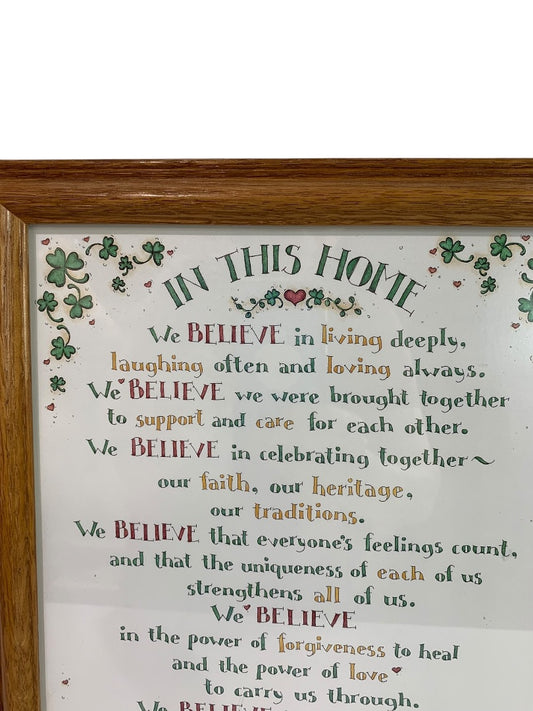 IN THIS HOME
We BELIEVE in living deeply,
laughing often and loving always.
We BELIEVE we were brought together
to support and care for each other.
We BELIEVE in celebrating together~
our faith, our heritage,
our traditions.
We BELIEVE that everyone's feelings count,
and that the uniqueness of each of us
strengthens all of us.
We BELIEVE
in the power of forgiveness to heal
and the power of love
to carry us through.
We BELIEVE